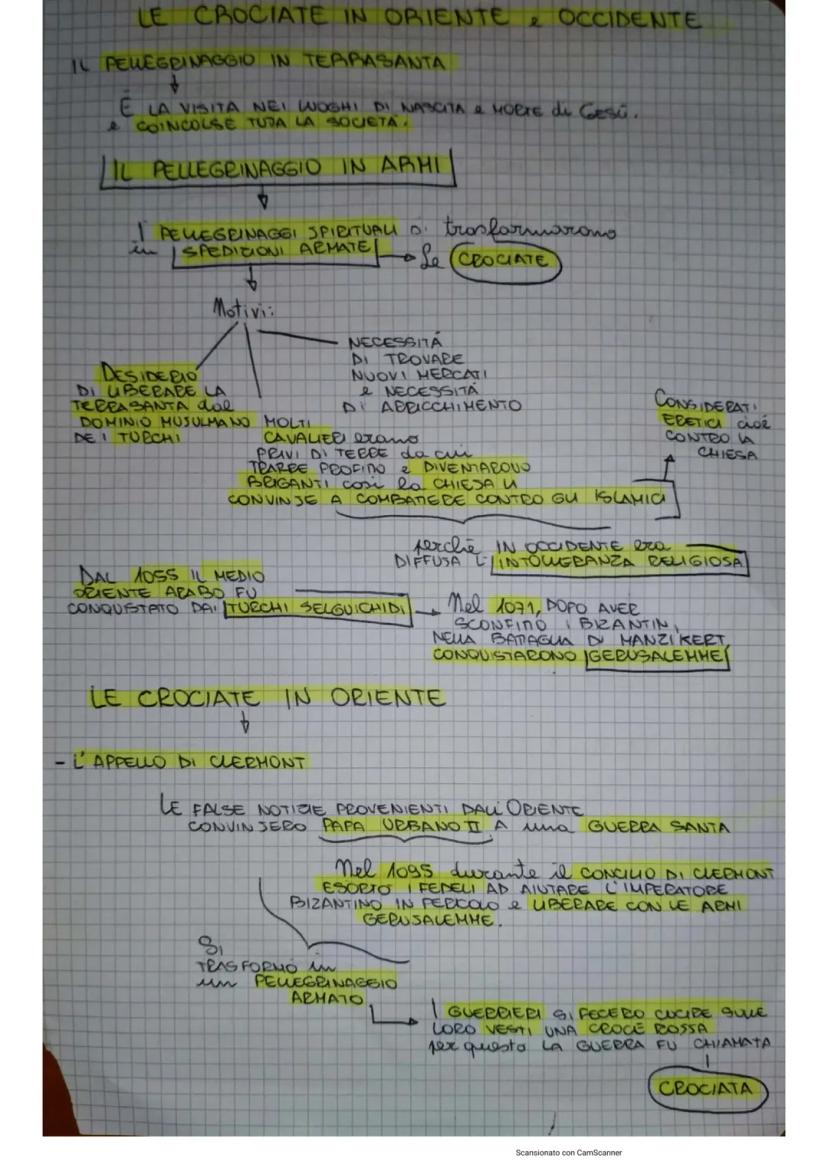 LE CROCIATE IN ORIENTE e OCCIDENTE
IL PELLEGRINAGGIO IN TERRASANTA
È LA VISITA NEI LUOGHI DI NASCITA e MORTE di GESÙ.
e COINVOLSE TUTTA LA SOCIETÀ.
IL PELLEGRINAGGIO IN ARMI
I PELLEGRINAGGI SPIRITUALI si trasformarono
in SPEDIZIONI ARMATE Le CROCIATE
Motivi:
NECESSITÀ
DI TROVARE
NUOVI MERCATI
e NECESSITÀ
DI ARRICCHIMENTO
DESIDERIO
DI LIBERARE LA
TERRASANTA dal
DOMINIO MUSULMANO
DEI TURCHI
MOLTI
CAVALIERI erano
PRIVI DI TERRE da cui
TRARRE PROFITTO e DIVENTARONO
BRIGANTI così la CHIESA LI
CONVINSE A COMBATTERE CONTRO GLI ISLAMICI
CONSIDERATI
ERETICI cioè
CONTRO LA
CHIESA
perchè IN OCCIDENTE era
DIFFUSA L'INTOLLERANZA RELIGIOSA
DAL 1055 IL MEDIO
ORIENTE ARABO FU
CONQUISTATO DAI TURCHI SELGUICHIDI
Nel 1071, DOPO AVER
SCONFITTO I BIZANTINI,
NELLA BATTAGLIA DI MANZIKERT,
CONQUISTARONO GERUSALEMME
LE CROCIATE IN ORIENTE
- L'APPELLO DI CLERMONT
LE FALSE NOTIZIE PROVENIENTI DALL'ORIENTE
CONVINSERO PAPA URBANO II A una GUERRA SANTA
Nel 1095 durante il CONCILIO DI CLERMONT
ESORTÒ I FEDELI AD AIUTARE L'IMPERATORE
BIZANTINO IN PERICOLO e LIBERARE CON LE ARMI
GERUSALEMME.
SI
TRASFORMÒ in
un PELLEGRINAGGIO
ARMATO
I GUERRIERI SI FECERO CUCIRE SULLE
LORO VESTI UNA CROCE ROSSA
per questo LA GUERRA FU CHIAMATA
CROCIATA
Scansionato con CamScanner